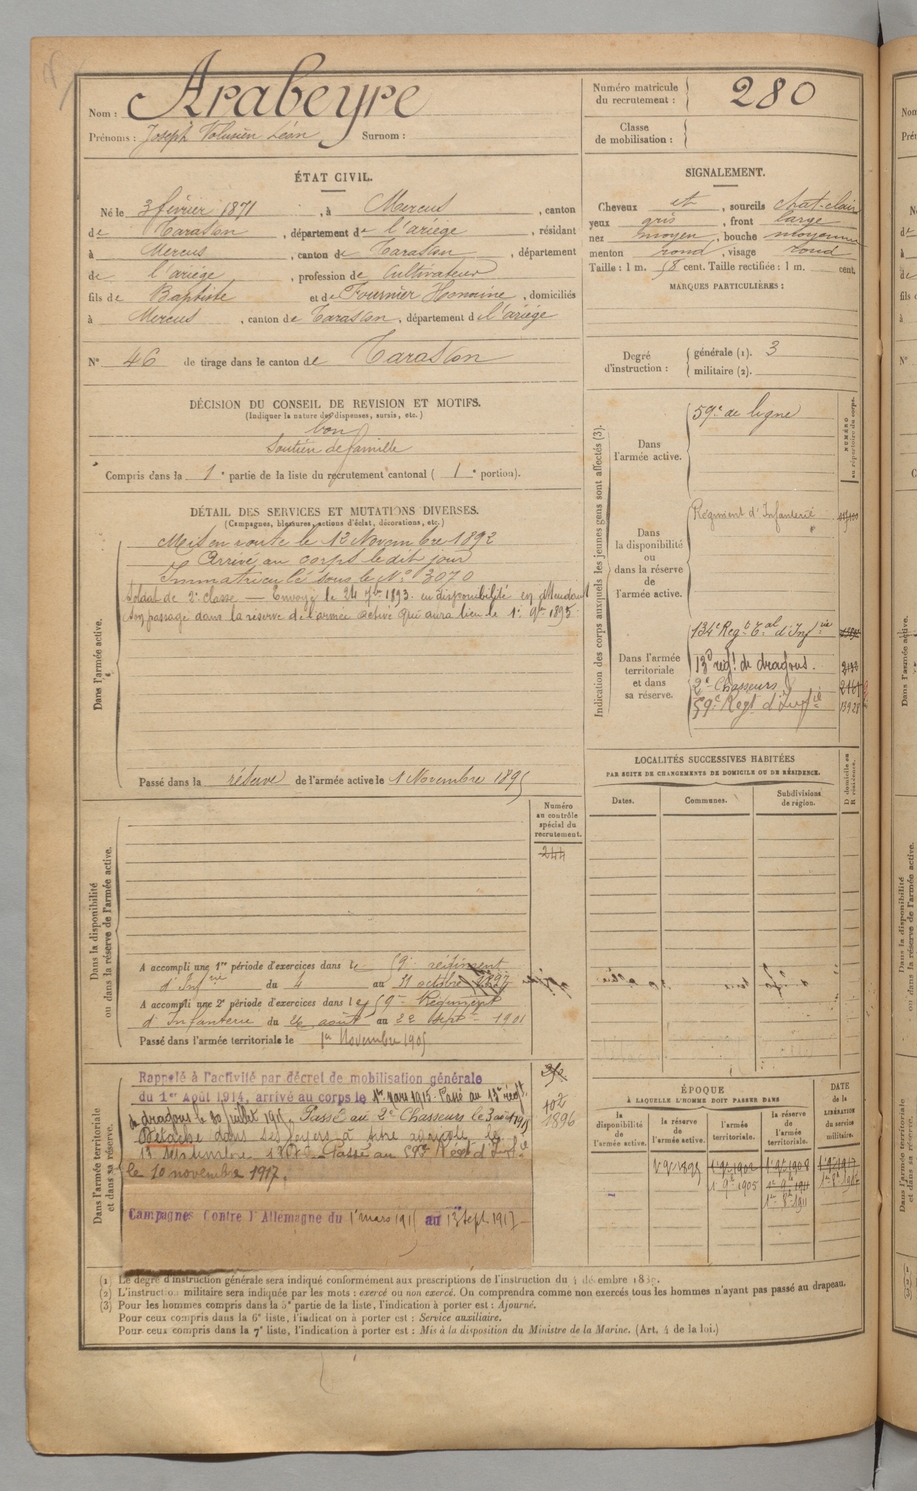 Nom : Arabeyre
Prénoms : Joseph Volusien Léon Surnom :
Numéro matricule du recrutement : 280
Classe de mobilisation :
ÉTAT CIVIL.
Né le 3 février 1871, à Mercus, canton
de Tarascon, département de l'ariége, résidant
à Mercus, canton de Tarascon, département
de l'ariége, profession de Cultivateur
fils de Baptiste et de Fournier Honorine, domiciliés
à Mercus, canton de Tarascon, département de l'ariége
N° 46 de tirage dans le canton de Tarascon
SIGNALEMENT.
Cheveux et, sourcils chat-clair
yeux gris, front large
nez moyen, bouche moyenne
menton rond, visage rond
Taille : 1 m. 58 cent. Taille rectifiée : 1 m. cent.
MARQUES PARTICULIÈRES :
Degré d'instruction : générale (1). 3
militaire (2).
DÉCISION DU CONSEIL DE REVISION ET MOTIFS.
(Indiquer la nature des dispenses, sursis, etc.)
bon
Soutien de famille
Compris dans la 1e partie de la liste du recrutement cantonal ( 1e portion).
DÉTAIL DES SERVICES ET MUTATIONS DIVERSES.
(Campagnes, blessures, actions d'éclat, décorations, etc.)
Dans l'armée active.
Mis en route le 12 Novembre 1892
Arrivé au corps le dit jour
Immatriculé sous le N° 3070
Soldat de 2e classe — Envoyé le 24 7bre 1893 en disponibilité en attendant
son passage dans la réserve de l'armée active qui aura lieu le 1er 9bre 1895
Passé dans la réserve de l'armée active le 1 Novembre 1895
Indication des corps auxquels les jeunes gens sont affectés (3).
NUMÉRO au répertoire du corps.
Dans l'armée active.
59e de ligne
Dans la disponibilité ou dans la réserve de l'armée active.
Régiment d'Infanterie
Dans l'armée territoriale et dans sa réserve.
134e Regt Eal d'Infie
13e régt de dragons.
2e Chasseurs
59e Regt d'Infie
LOCALITÉS SUCCESSIVES HABITÉES
PAR SUITE DE CHANGEMENTS DE DOMICILE OU DE RÉSIDENCE.
Dates. Communes. Subdivisions de région.
D domicile ou R résidence.
Numéro au contrôle spécial du recrutement.
244
Dans la disponibilité ou dans la réserve de l'armée active.
A accompli une 1re période d'exercices dans le 59e régiment
d'Infie du 4 au 31 octobre
A accompli une 2e période d'exercices dans le 59e Régiment
d'Infanterie du 26 août au 22 Sept 1901
Passé dans l'armée territoriale le 1er Novembre 1905
Dans l'armée territoriale et dans sa réserve.
Rappelé à l'activité par décret de mobilisation générale
du 1er Août 1914, arrivé au corps le 1er mars 1915. Passé au 13e régt
de dragons le 30 juillet 1915. Passé au 2e Chasseurs le
Détaché dans ses foyers à titre agricole le
13 Septembre 1917. Passé au 59e Regt d'Infie
le 10 novembre 1917.
Campagnes Contre l'Allemagne du 1er mars 1915 au 13 Sept. 1917
102
1896
ÉPOQUE
À LAQUELLE L'HOMME DOIT PASSER DANS
la disponibilité de l'armée active.
la réserve de l'armée active.
l'armée territoriale.
la réserve de l'armée territoriale.
DATE de la LIBÉRATION du service militaire.
(1) Le degré d'instruction générale sera indiqué conformément aux prescriptions de l'instruction du
(2) L'instruction militaire sera indiquée par les mots : exercé ou non exercé. On comprendra comme non exercés tous les hommes n'ayant pas passé au drapeau.
(3) Pour les hommes compris dans la 5e partie de la liste, l'indication à porter est : Ajourné.
Pour ceux compris dans la 6e liste, l'indication à porter est : Service auxiliaire.
Pour ceux compris dans la 7e liste, l'indication à porter est : Mis à la disposition du Ministre de la Marine. (Art. 4 de la loi.)